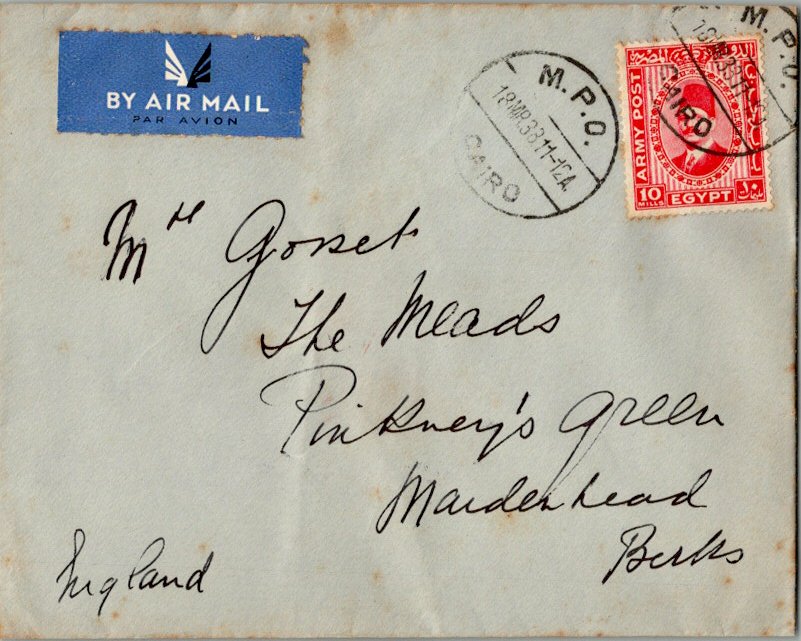 BY AIR MAIL
PAR AVION
M.P.O.
18MR38.11-12A
CAIRO
M.P.O.
CAIRO
ARMY POST
10
MILLS
EGYPT
Gosset
The Meads
Pinkney's Green
Maidenhead
Berks
England